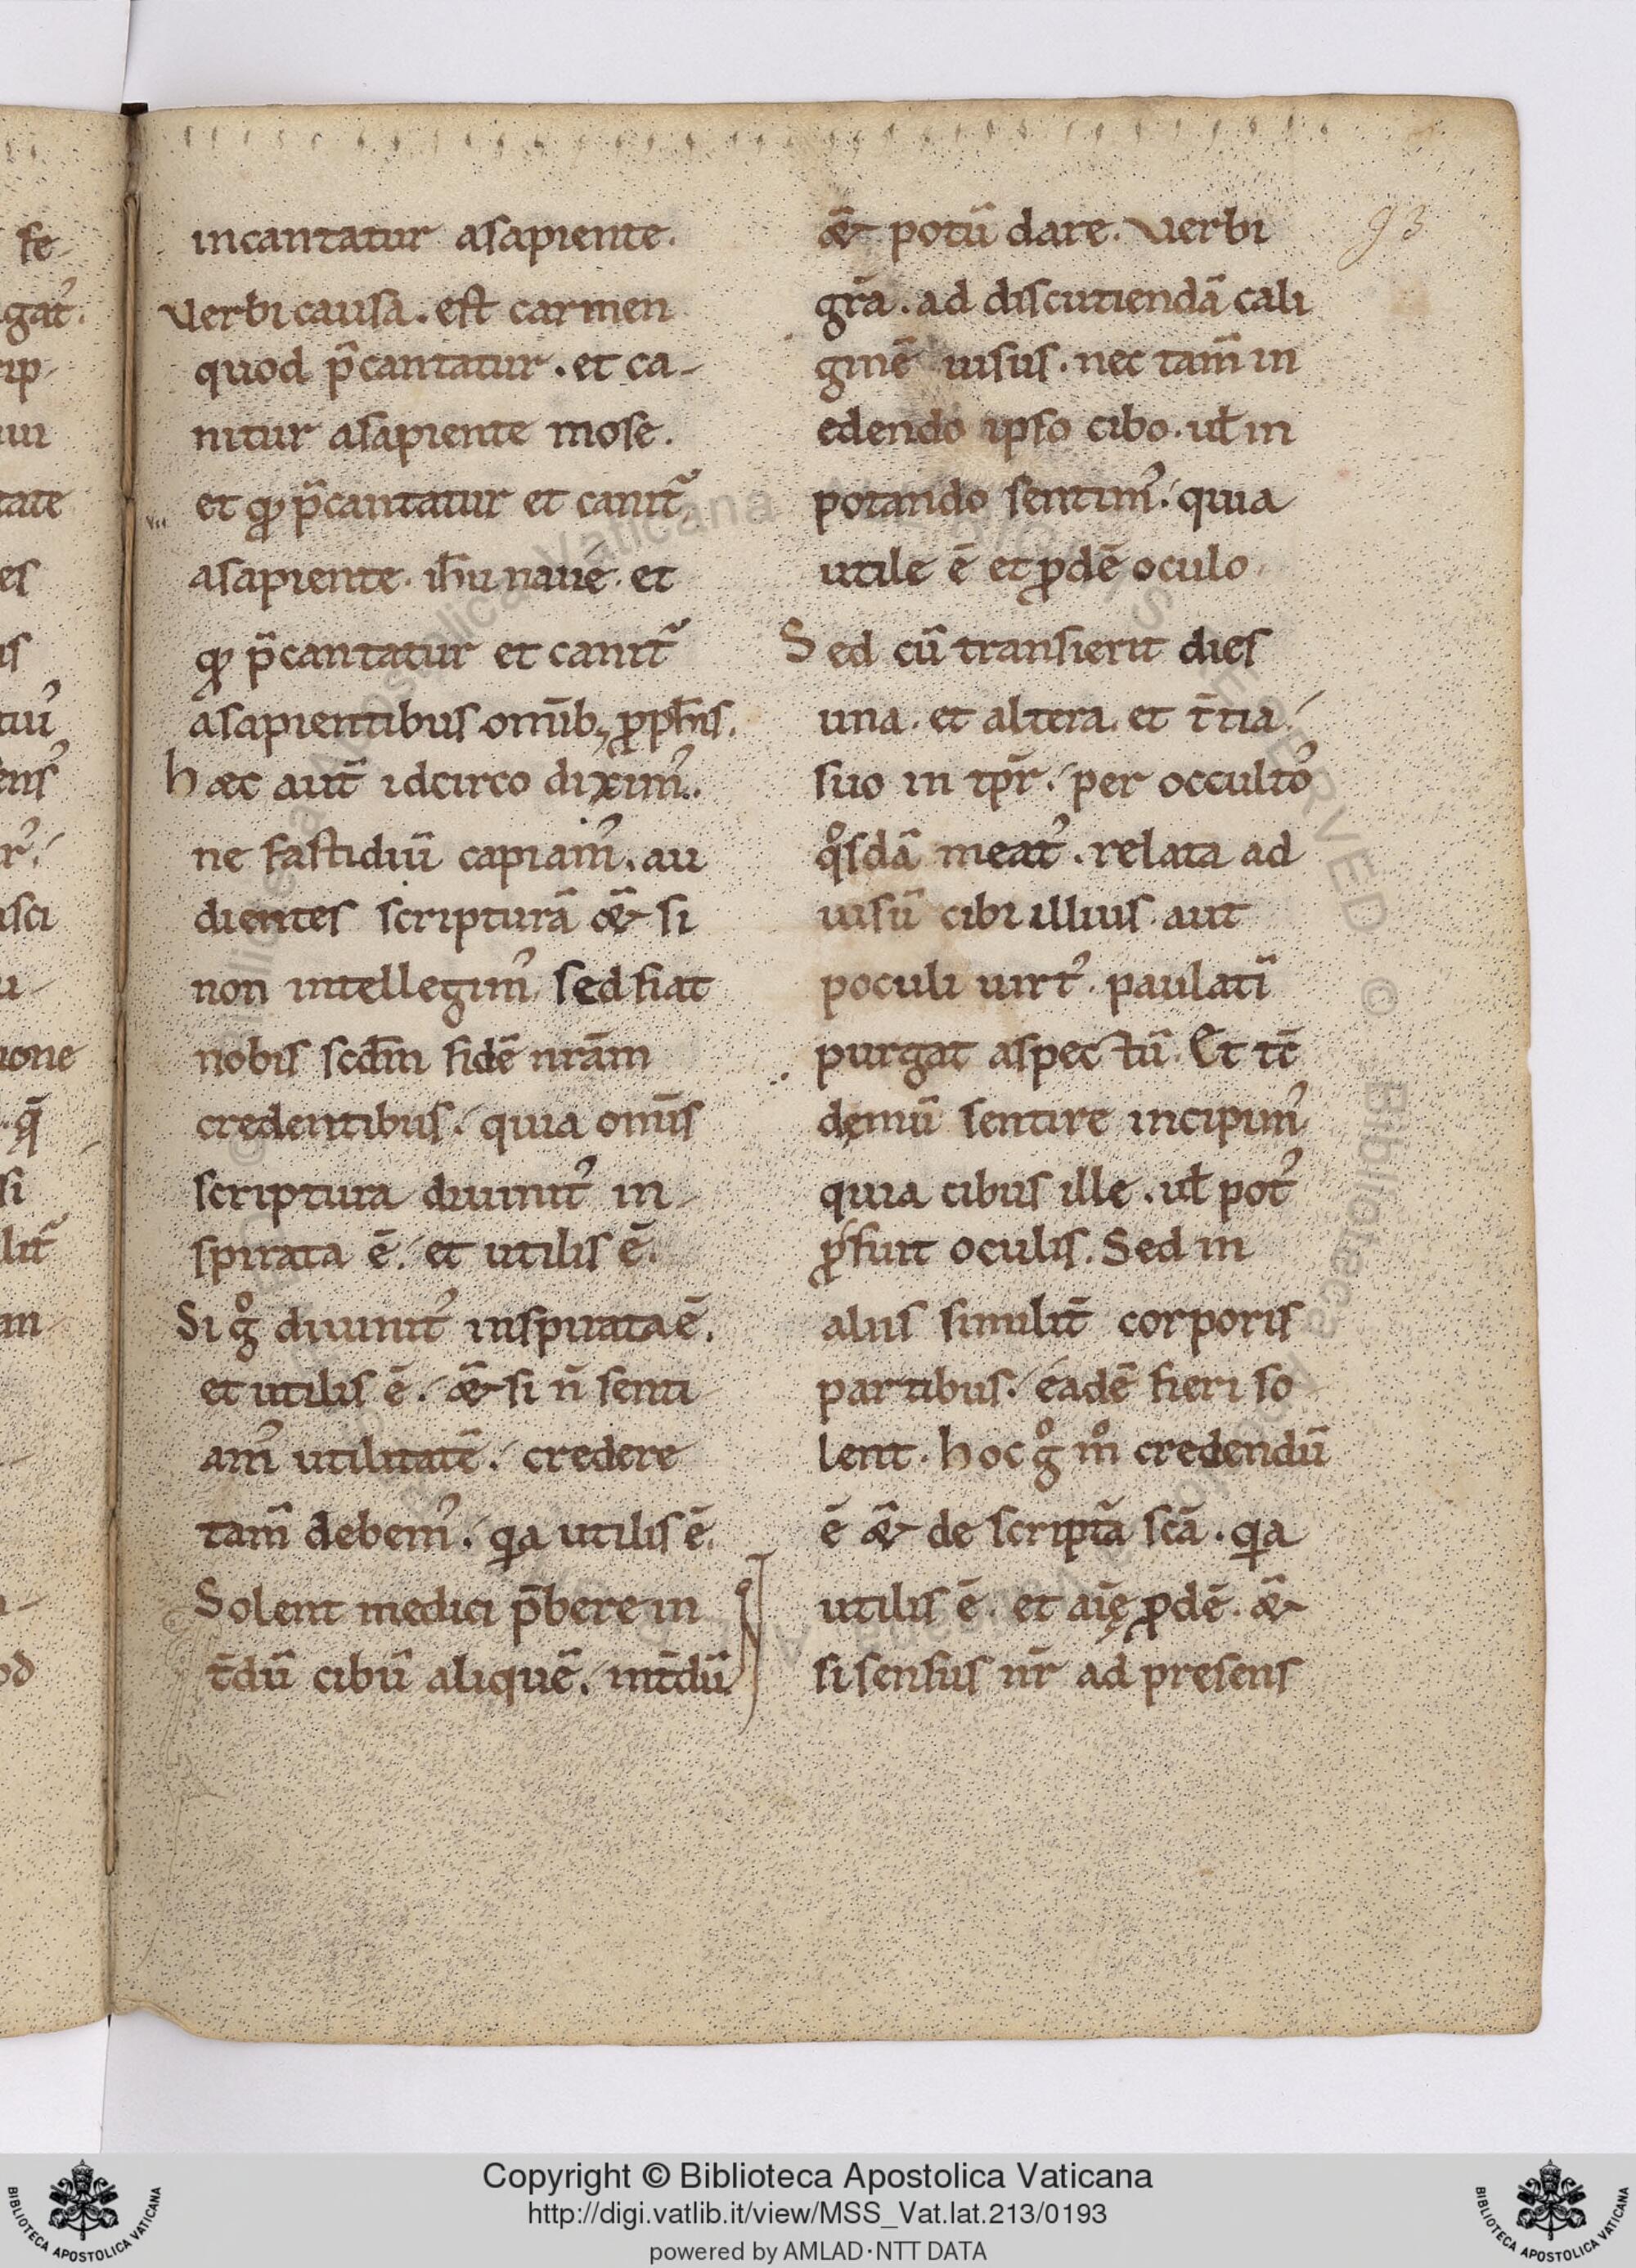 incantatur asapiente.
Verbi causa. est carmen
quod p̄cantatur. et ca-
nitur asapiente mose.
et qđ p̄cantatur et canit᷑
asapiente. ihu naue. et
qđ p̄cantatur et canit᷑
asapientibus omīb; ꝓph̄is.
haec aut̄ idcirco dixim᾿.
ne fastidiū capiam᾿. au
dientes scripturā & si
non intellegim᾿ sed fiat
nobis scdm̄ fidē nrām
credentibus. quia om̄is
scriptura diuinit᾿ in-
spirata ē. et utilis ē.
Si g̊ diuinit᾿ inspirata ē.
et utilis ē. & si n̄ senti
am᾿ utilitatē. credere
tam̄ debem᾿. qia utilis ē.
Solent medici p̄bere in
t̄dū cibū aliquē. int̄dū
& potū dare. Verbi
gr̄a. ad discutiendā cali
ginē uisus. nec tam̄ in
edendo ipso cibo. uł in
potando sentim᾿. quia
utile ē et ꝓdē oculo.
Sed cū transierit dies
una. et altera. et t̄tia.
suo in tp̄r. per occulto᾿
qͦsdā meat᾿. relata ad
uisū cibi illius aut
poculi uirt᾿. paulatī
purgat aspectū. Et tc̄
demū sentire incipim᾿
quia cibus ille. uł pot᾿
ꝓfuit oculis. Sed in
aliis similit̄ corporis
partibus. eadē fieri so
lent. hoc g̊ m̊ credendū
ē & de scriptā scā. qia
utilis ē. et aīę ꝓdē. &
si sensus nr̄ ad presens
93
Copyright © Biblioteca Apostolica Vaticana
http://digi.vatlib.it/view/MSS_Vat.lat.213/0193
powered by AMLAD·NTT DATA
BIBLIOTECA APOSTOLICA VATICANA
BIBLIOTECA APOSTOLICA VATICANA